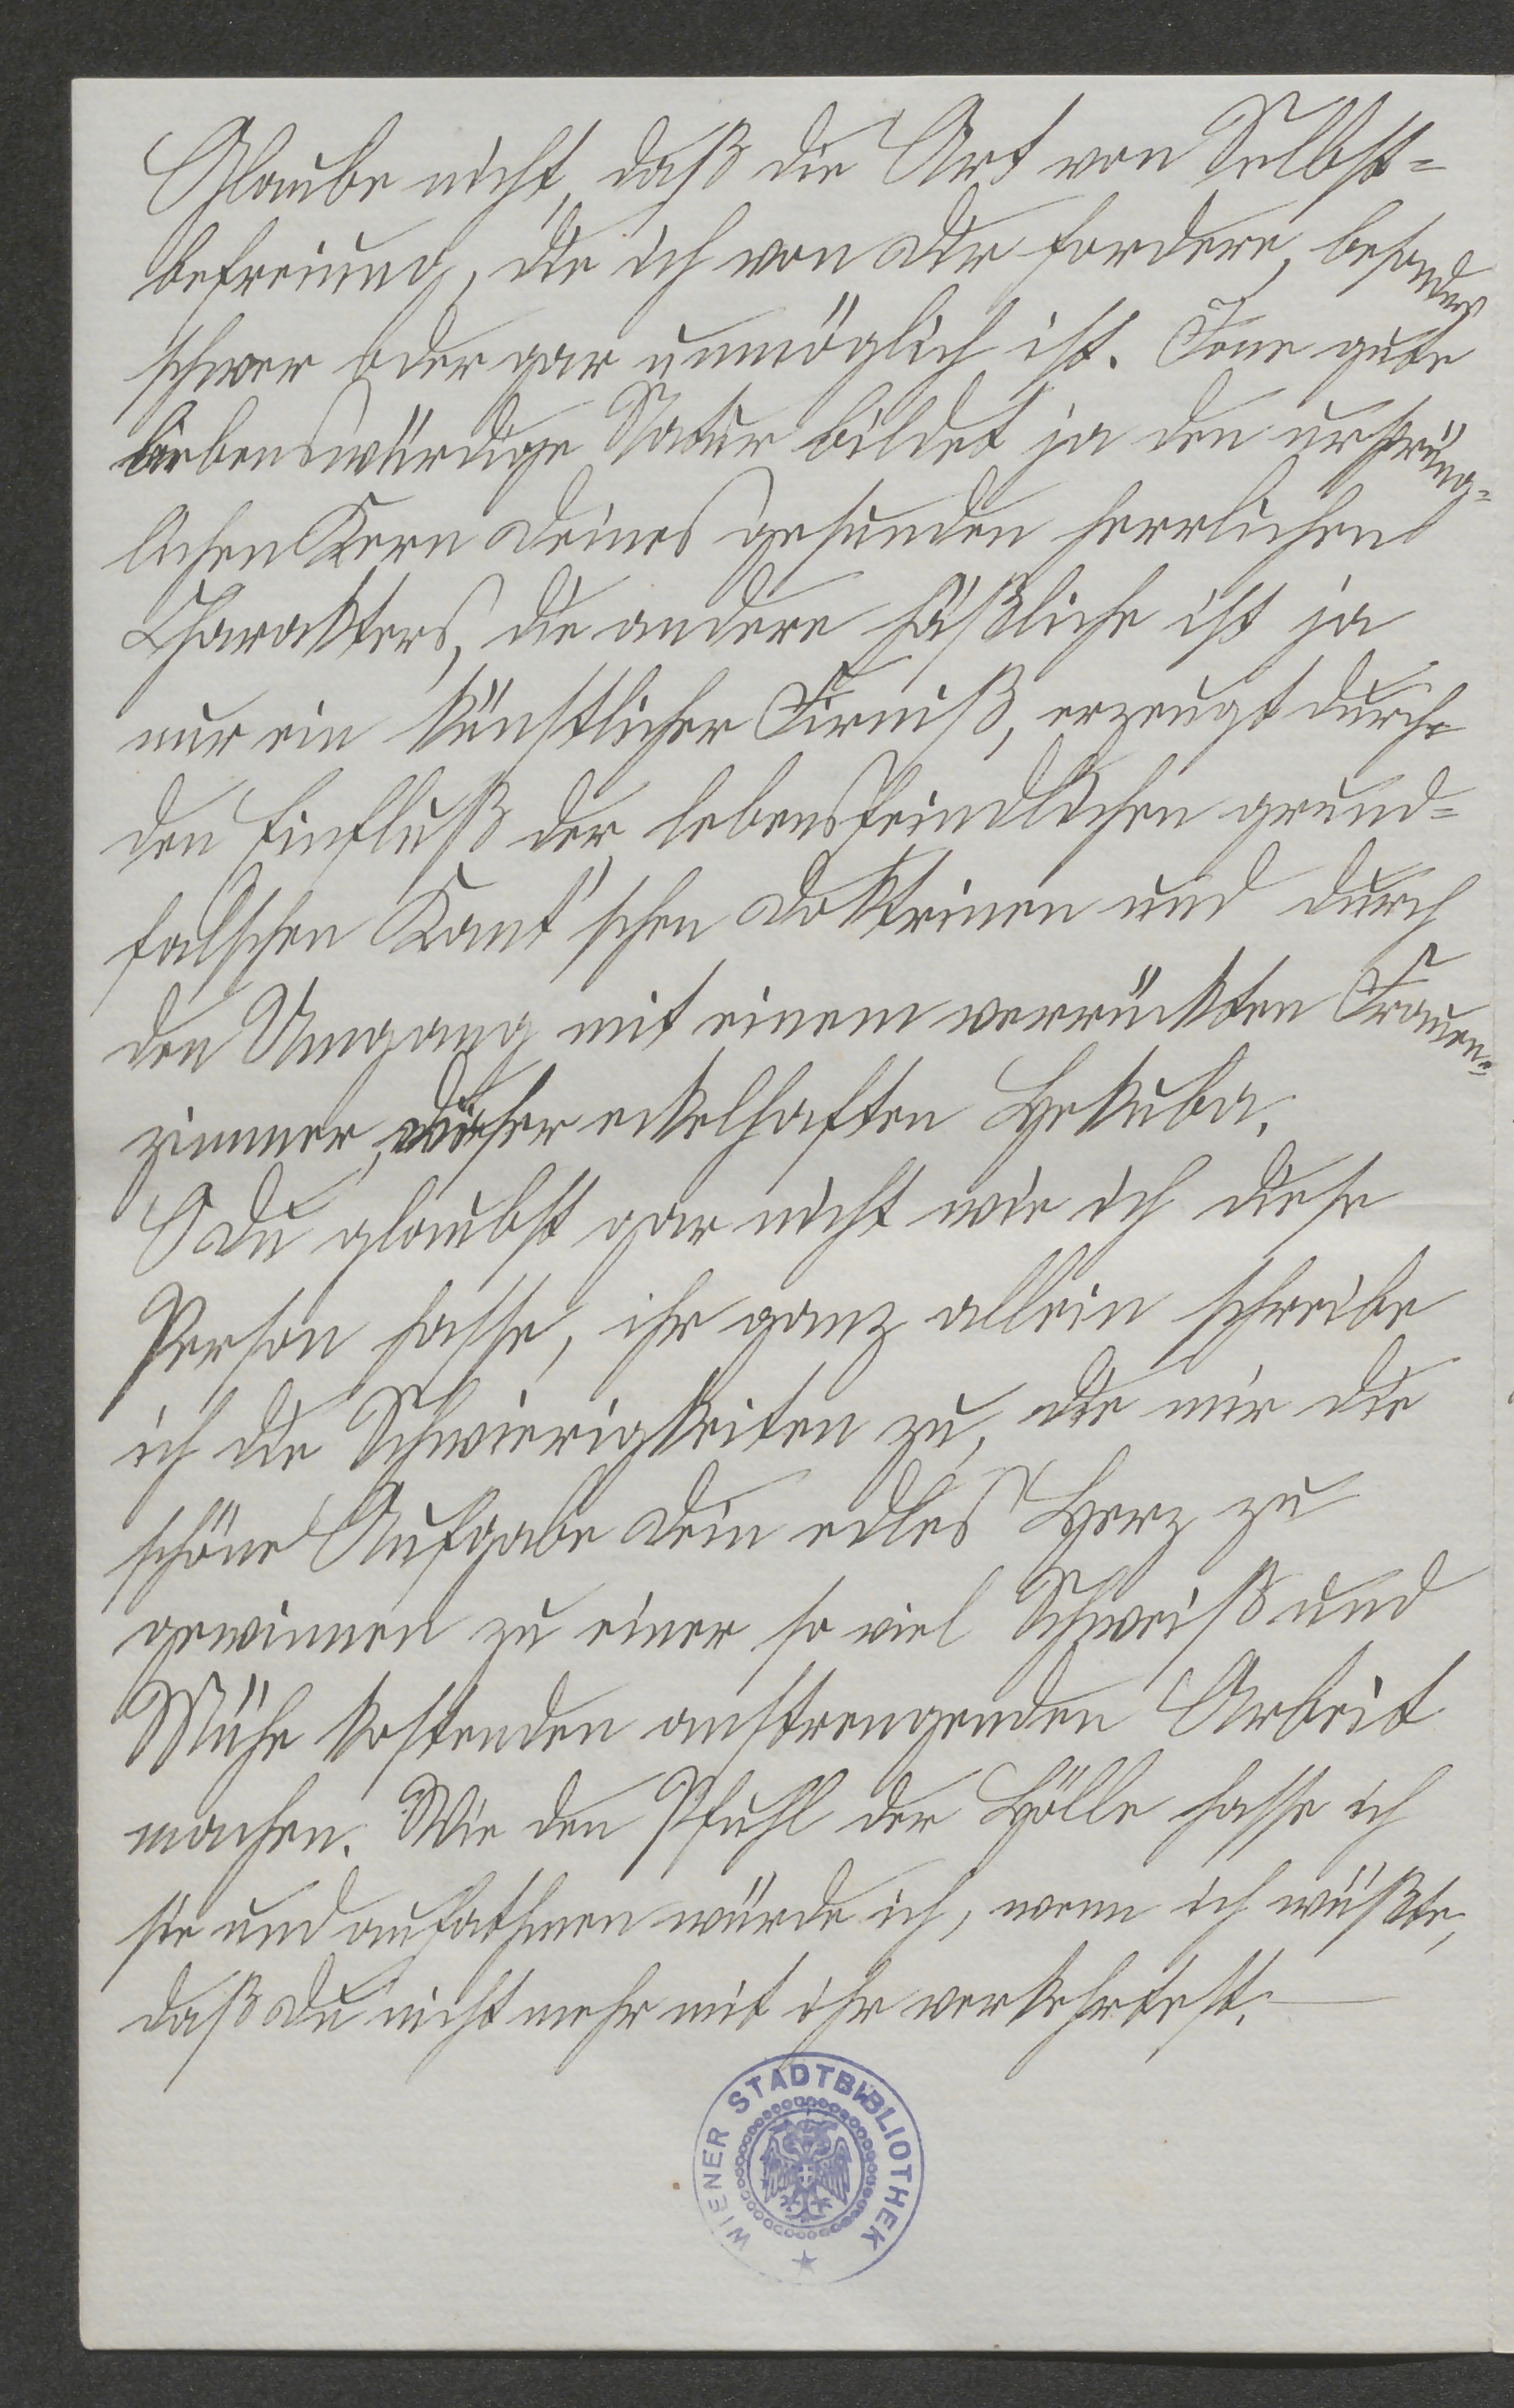 Glaube nicht, daß die Art von Selbst-
befreiung, die ich von Dir fordere, besonders
schwer oder gar unmöglich ist. Jene gute
liebenswürdige Natur bildet ja den ursprüng-
lichen Kern Deines gesunden herrlichen
Charakters, die andere häßliche ist ja
nur ein künstlicher Firniß, erzeugt durch
den Einfluß der lebensfeindlichen grund-
falschen Kant'schen Doktrinen und durch
den Umgang mit einem verrückten Frauen-
zimmer, dieser ekelhaften Hekuba.
O Du glaubst gar nicht wie ich diese
Person hasse, ihr ganz allein schreibe
ich die Schwierigkeiten zu, die mir die
schöne Aufgabe Dein edles Herz zu
gewinnen zu einer so viel Schweiß und
Mühe kostenden anstrengenden Arbeit
machen. Wie den Pfuhl der Hölle hasse ich
sie und aufathmen würde ich, wenn ich wüßte,
daß Du nicht mehr mit ihr verkehrtest.—
WIENER STADTBIBLIOTHEK